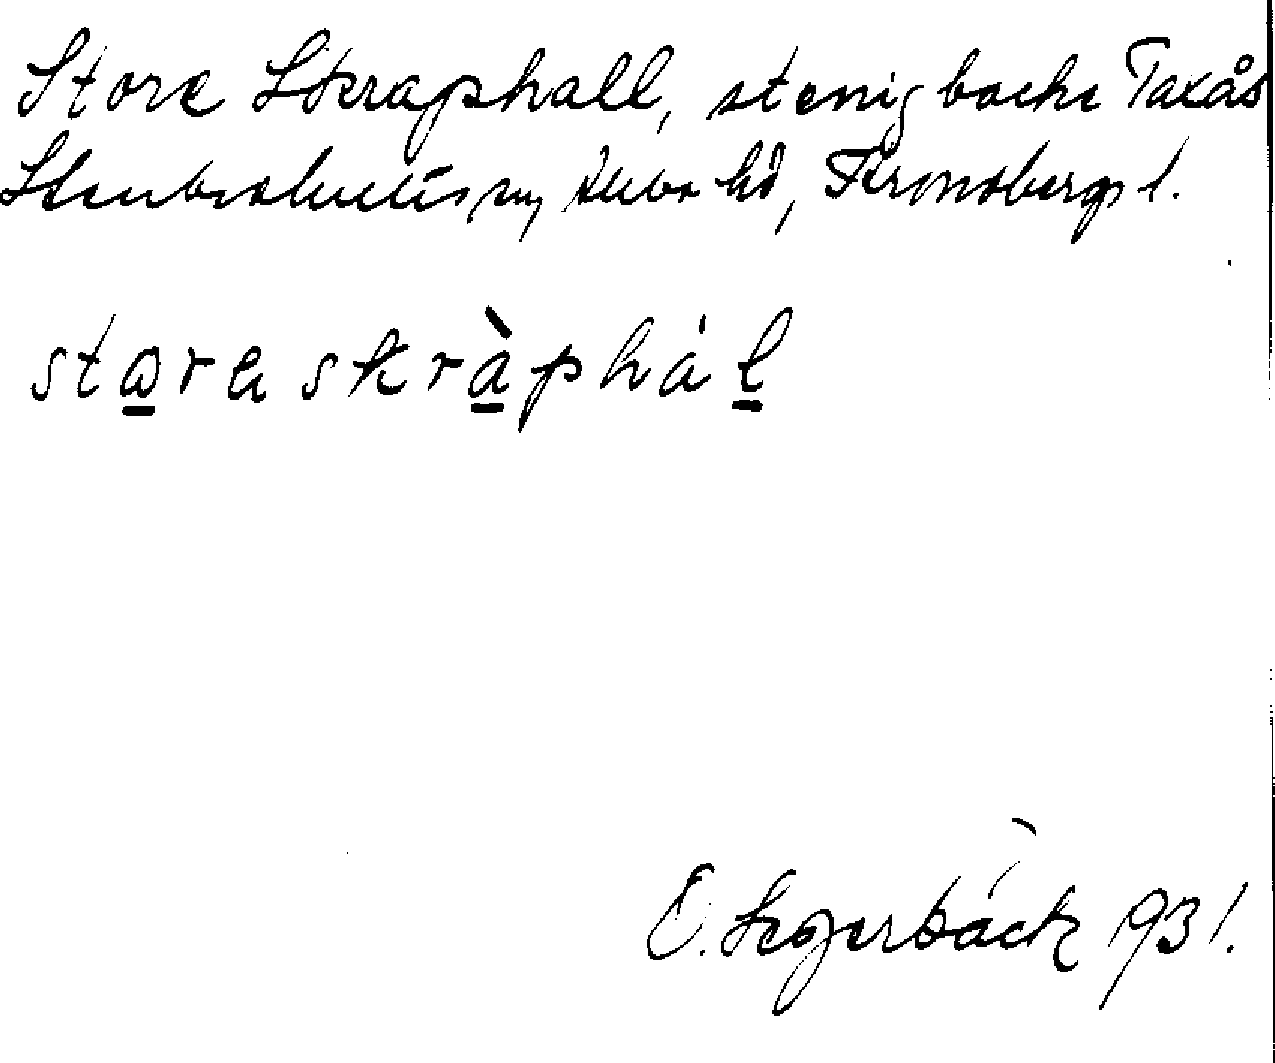 Store Skraphall, stenig backe Taxås
Stenbrohults sn, Allbo hd, Kronobergs l.
stora skràphál
E. Segerbäck 931.